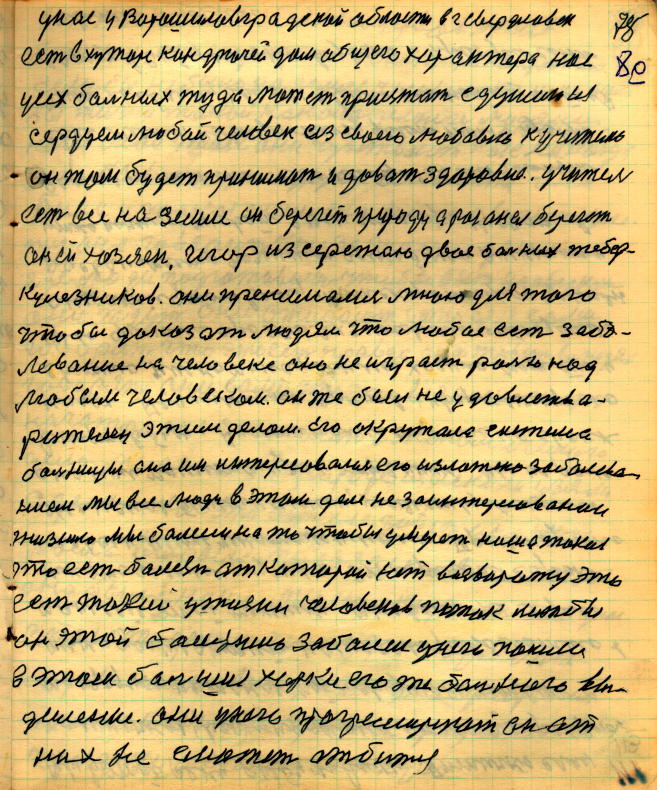 у нас у Ворошиловградской области в г свердловск
ест в хутор кондрючей дом общего характера нас
усех балных туда может приехат с душом и
сердцем любой человек из своею любовю к учителю
он там будет принимат и доват здоровие. учител
ест все на земли он берегет природу а берегет
он ей хозяен. Игор из сережаю двое балних тебер-
кулезников. они принимали мною для того
чтобы доказат людям что любое ест забо-
левание на человеке оно не играет ролю над
любым человеком. он же был не удовлетва-
рителен этим делом. его окружала система
балници она им интересовалас его изложно заболева-
нием мы все люди в этом деле не заинтересовани
жизнию мы балеем на то чтобы умерет наша такая
это ест балезн от которой нет возворату это
ест такий у жизни человеков поток
он этой балезнию заболел у него пошли
в этом балнии харки его же балного вы-
деление. они у него прогресируют он от
них не сможет отбится